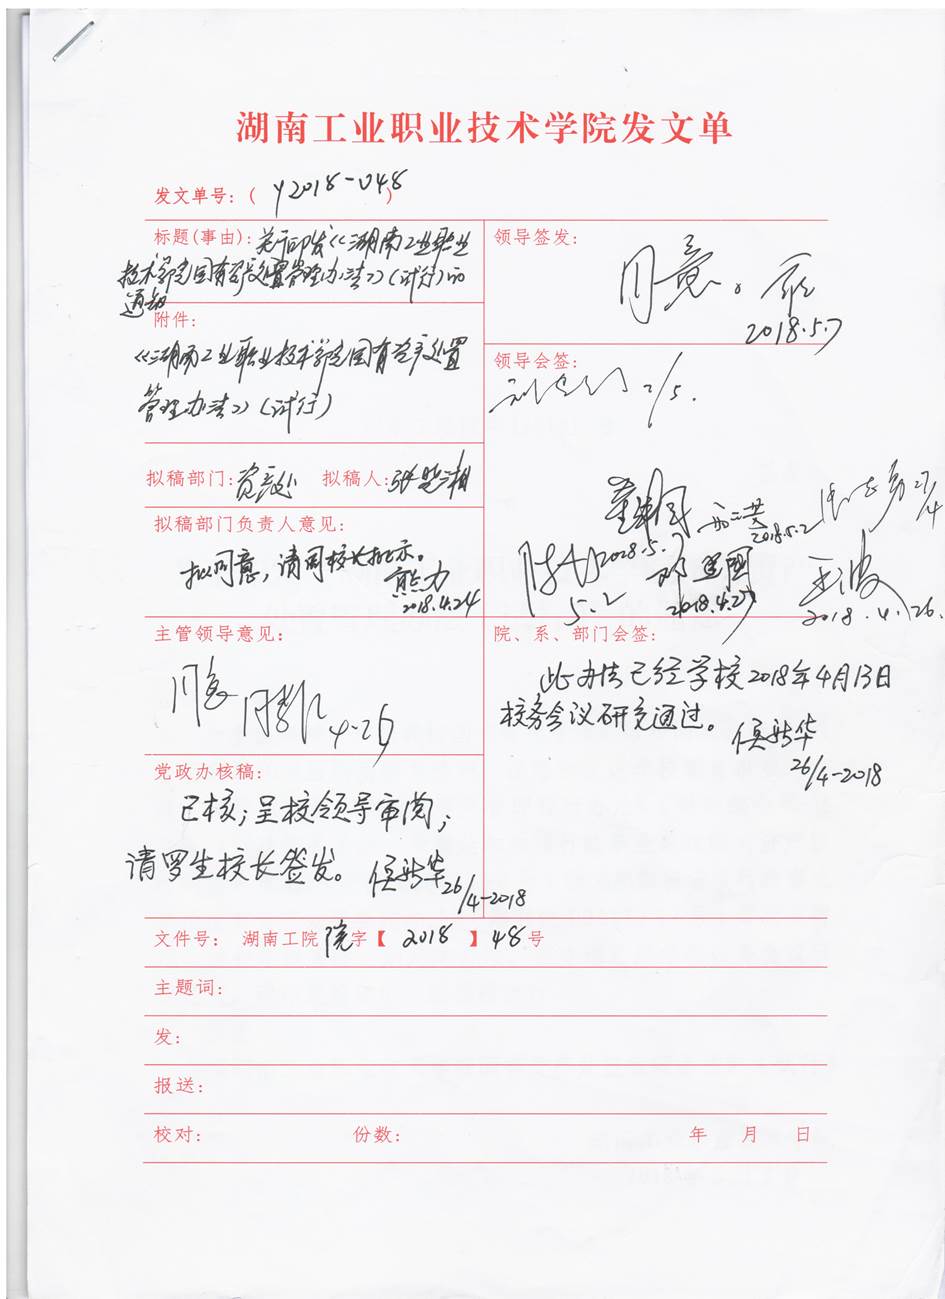 湖南工业职业技术学院发文单
发文单号：( Y2018-048 )
标题(事由)：关于印发《湖南工业职业
技术学院国有资产处置管理办法》（试行）的
通知
附件：
《湖南工业职业技术学院国有资产处置
管理办法》（试行）
拟稿部门：资产处 拟稿人：张楚湘
拟稿部门负责人意见：
拟同意，请周校长批示。
熊力
2018.4.24
主管领导意见：
同意
4-26
党政办核稿：
已核；呈校领导审阅；
请罗生校长签发。 侯新华
26/4-2018
领导签发：
同意。
2018.5.7
领导会签：
2/5.
27/4
2018.5.2
2018.5.7
5.2
2018.4.27
王波
2018.4.26.
院、系、部门会签：
此办法已经学校2018年4月13日
校务会议研究通过。
侯新华
26/4-2018
文件号： 湖南工院院字【 2018 】48号
主题词：
发：
报送：
校对： 份数： 年 月 日